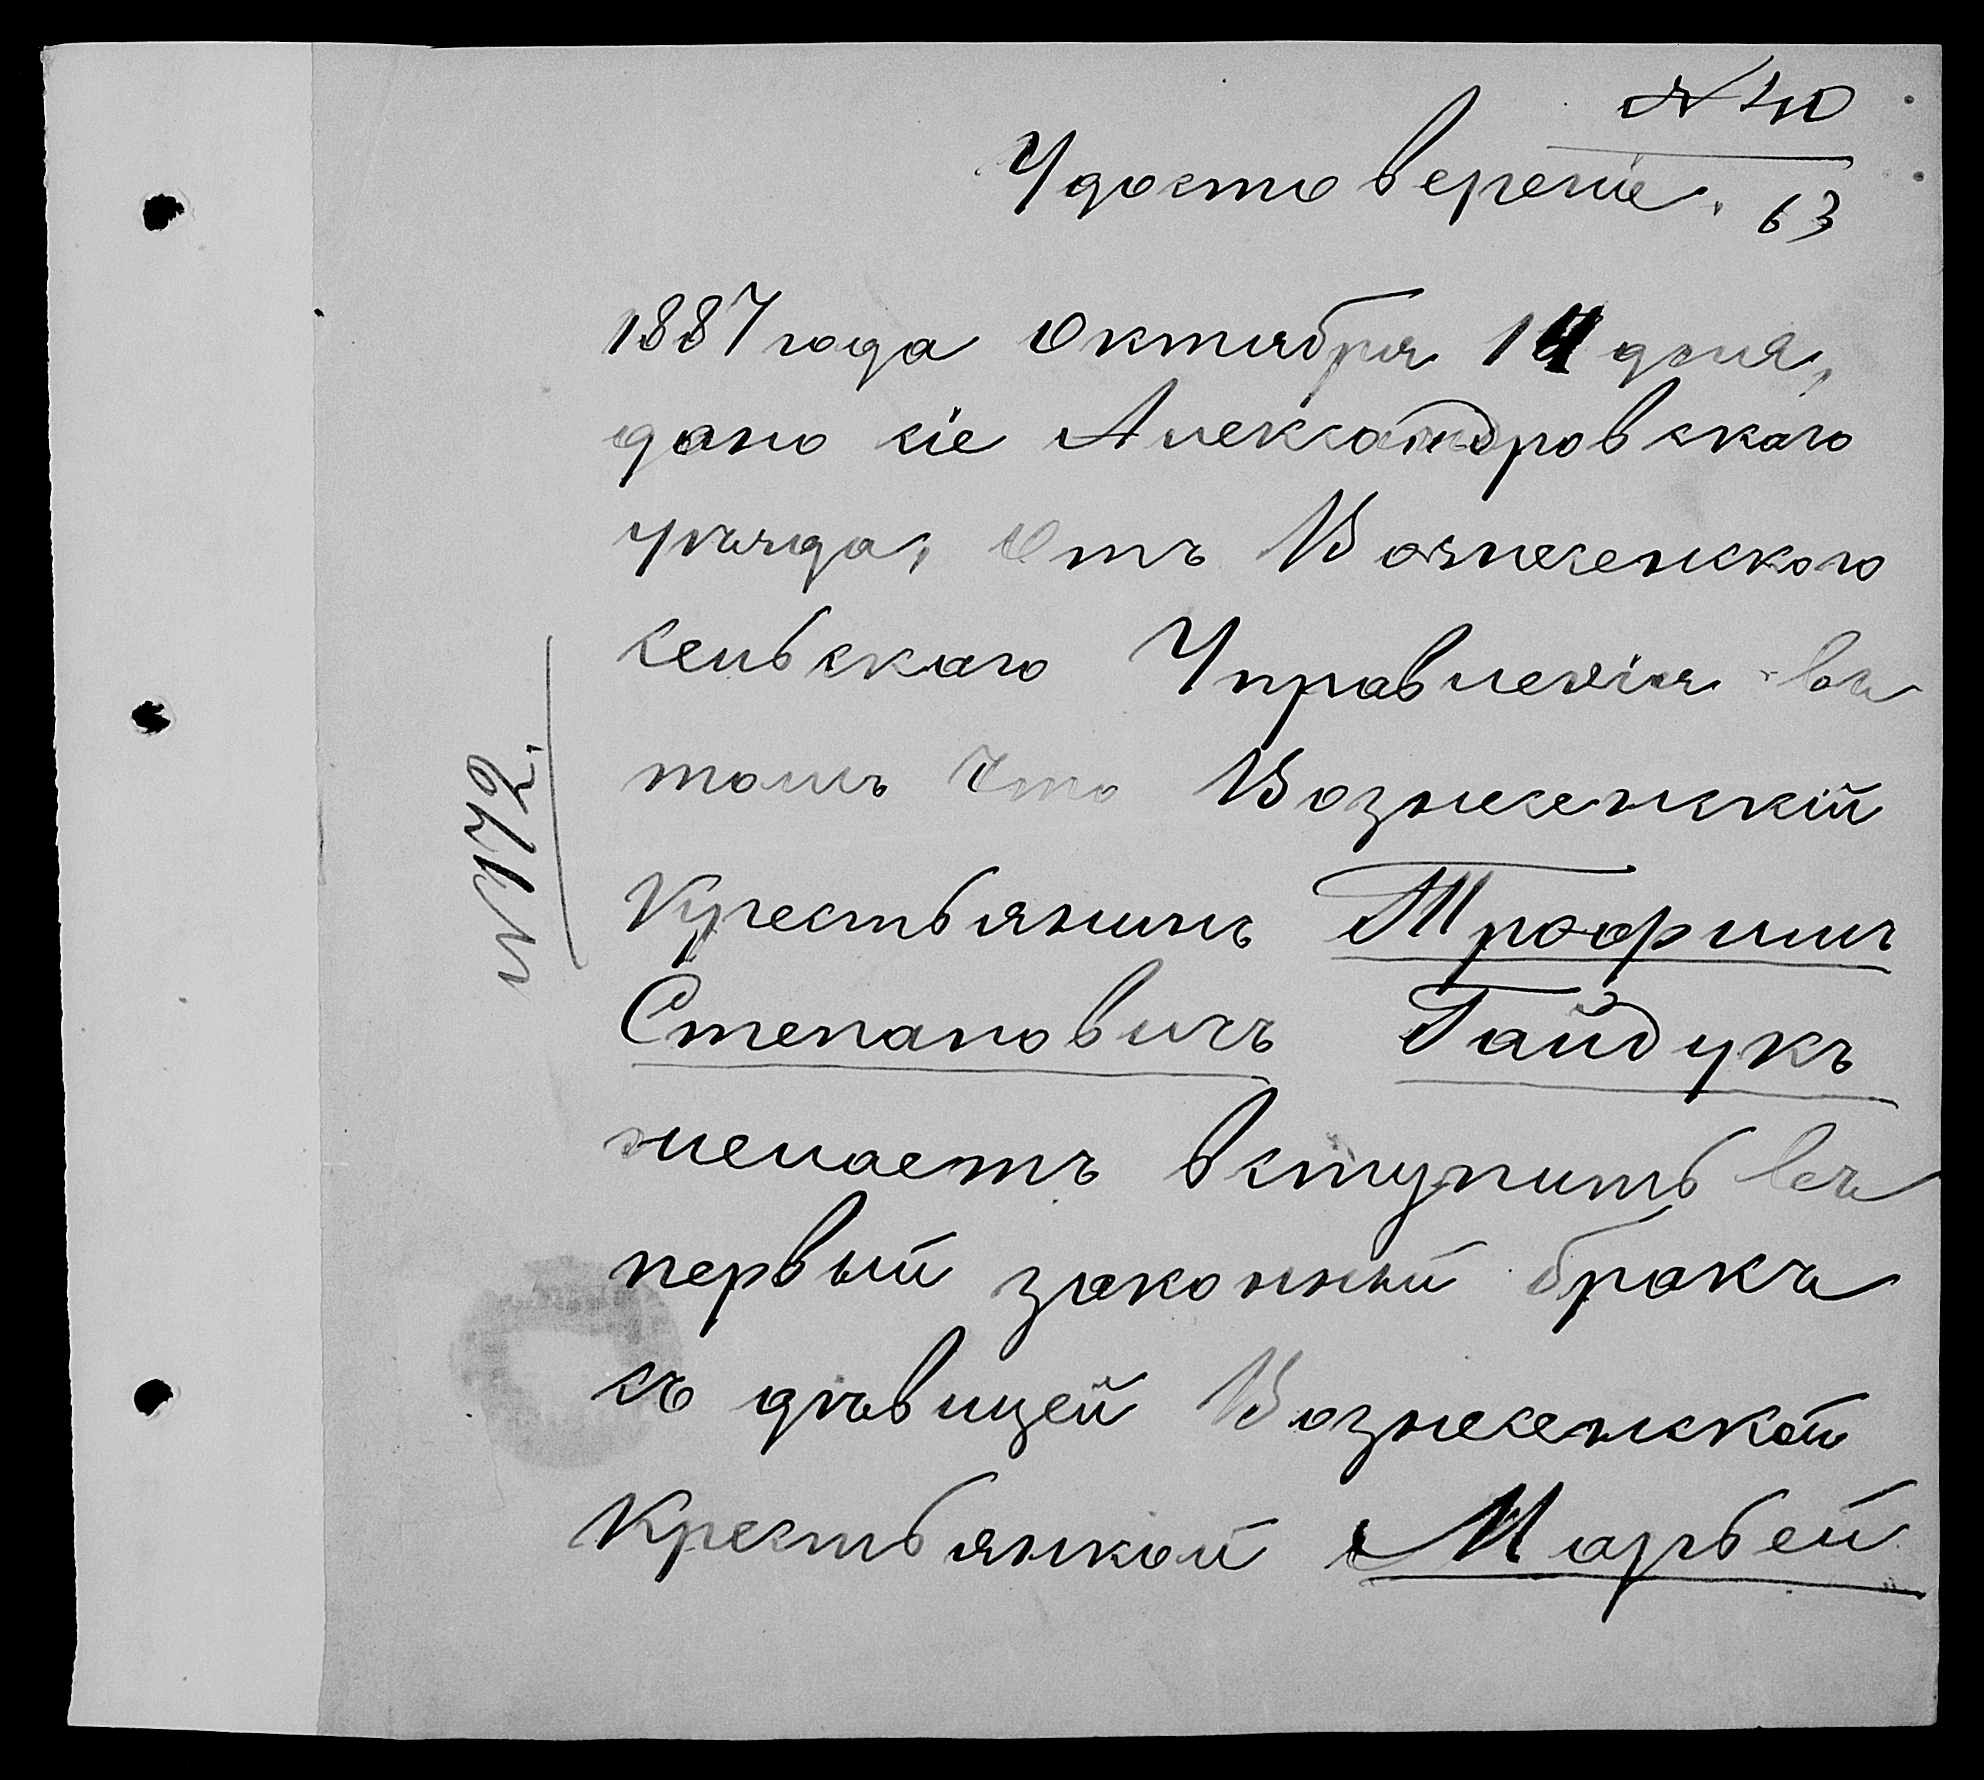 № 40
Удостоверение. 63
1887 года Октября 14 дня,
дано сіе Александровскаго
уѣзда, Отъ Вознесенскаго
сельскаго Управленія въ
томъ что Вознесенскій
Крестьянинъ Трофимъ
Степановичъ Гайдукъ
желаетъ вступить въ
первый законный бракъ
съ дѣвицей Вознесенской
Крестьянкой Марьей